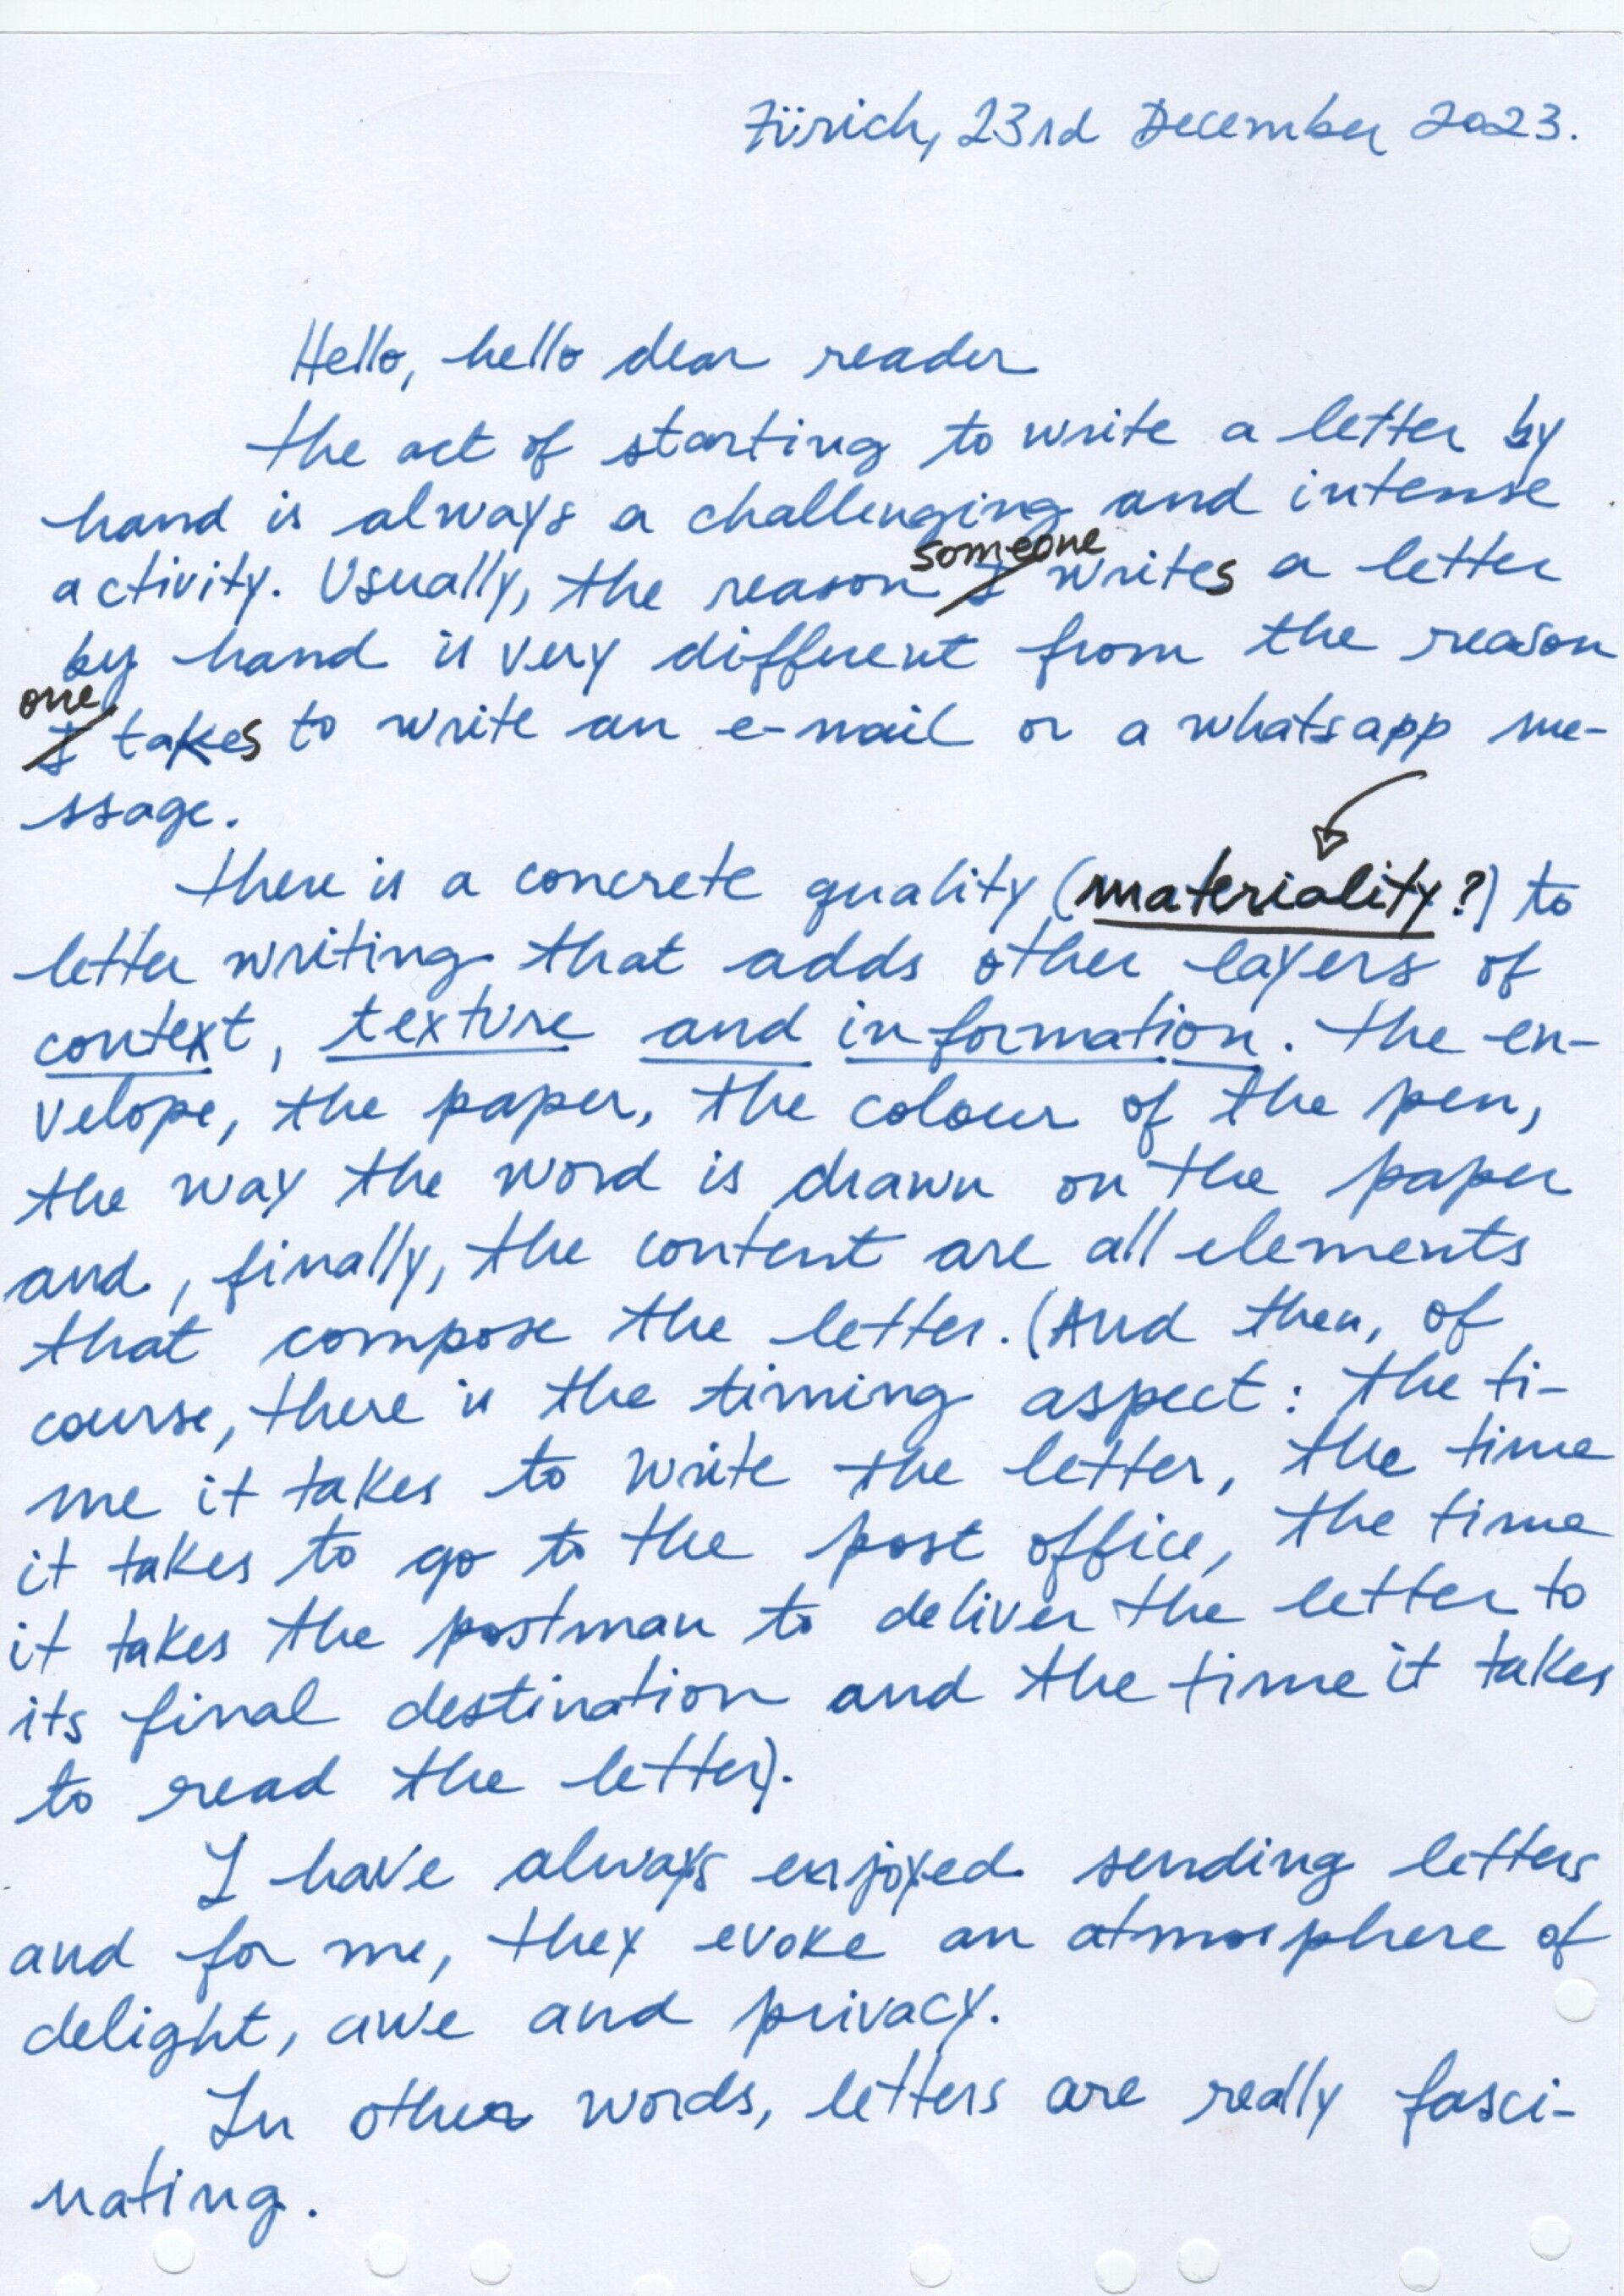 Zürich, 23rd December 2023.
Hello, hello dear reader
the act of starting to write a letter by
hand is always a challenging and intense
activity. Usually, the reason someone writes a letter
by hand is very different from the reason
one takes to write an e-mail or a whatsapp me-
ssage.
there is a concrete quality (materiality?) to
letter writing that adds other layers of
context, texture and information. the en-
velope, the paper, the colour of the pen,
the way the word is drawn on the paper
and, finally, the content are all elements
that compose the letter. (And then, of
course, there is the timing aspect: the ti-
me it takes to write the letter, the time
it takes to go to the post office, the time
it takes the postman to deliver the letter to
its final destination and the time it takes
to read the letter).
I have always enjoyed sending letters
and for me, they evoke an atmosphere of
delight, awe and privacy.
In other words, letters are really fasci-
nating.